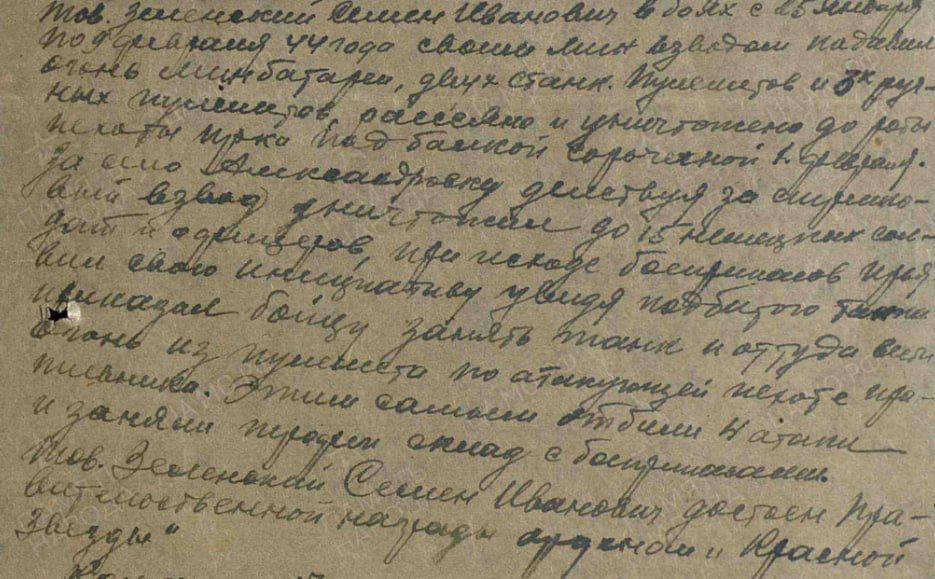 тов. Зеленский Семен Иванович в боях с 25 января
по 9 февраля 44 года своим мин взводом подавил
огонь минбатареи, двух станк. пулеметов и 5х руч-
ных пулеметов, рассеяно и уничтожено до роты
пехоты пр-ка под балкой Сорочечной 1 февраля.
За село Александровку действуя за стрелко-
вый взвод уничтожил до 15 немецких сол-
дат и офицеров, при исходе боеприпасов проя
вил свою инициативу увидя подбитого танка
приказал бойцу занять танк и оттуда вести
огонь из пулемета по атакующей пехоте про-
тивника. Этим самым отбили 4 атаки
и заняли трофеи склад с боеприпасами.
Тов. Зеленский Семен Иванович достоен пра-
вительственной награды орденом „Красной
Звезды"